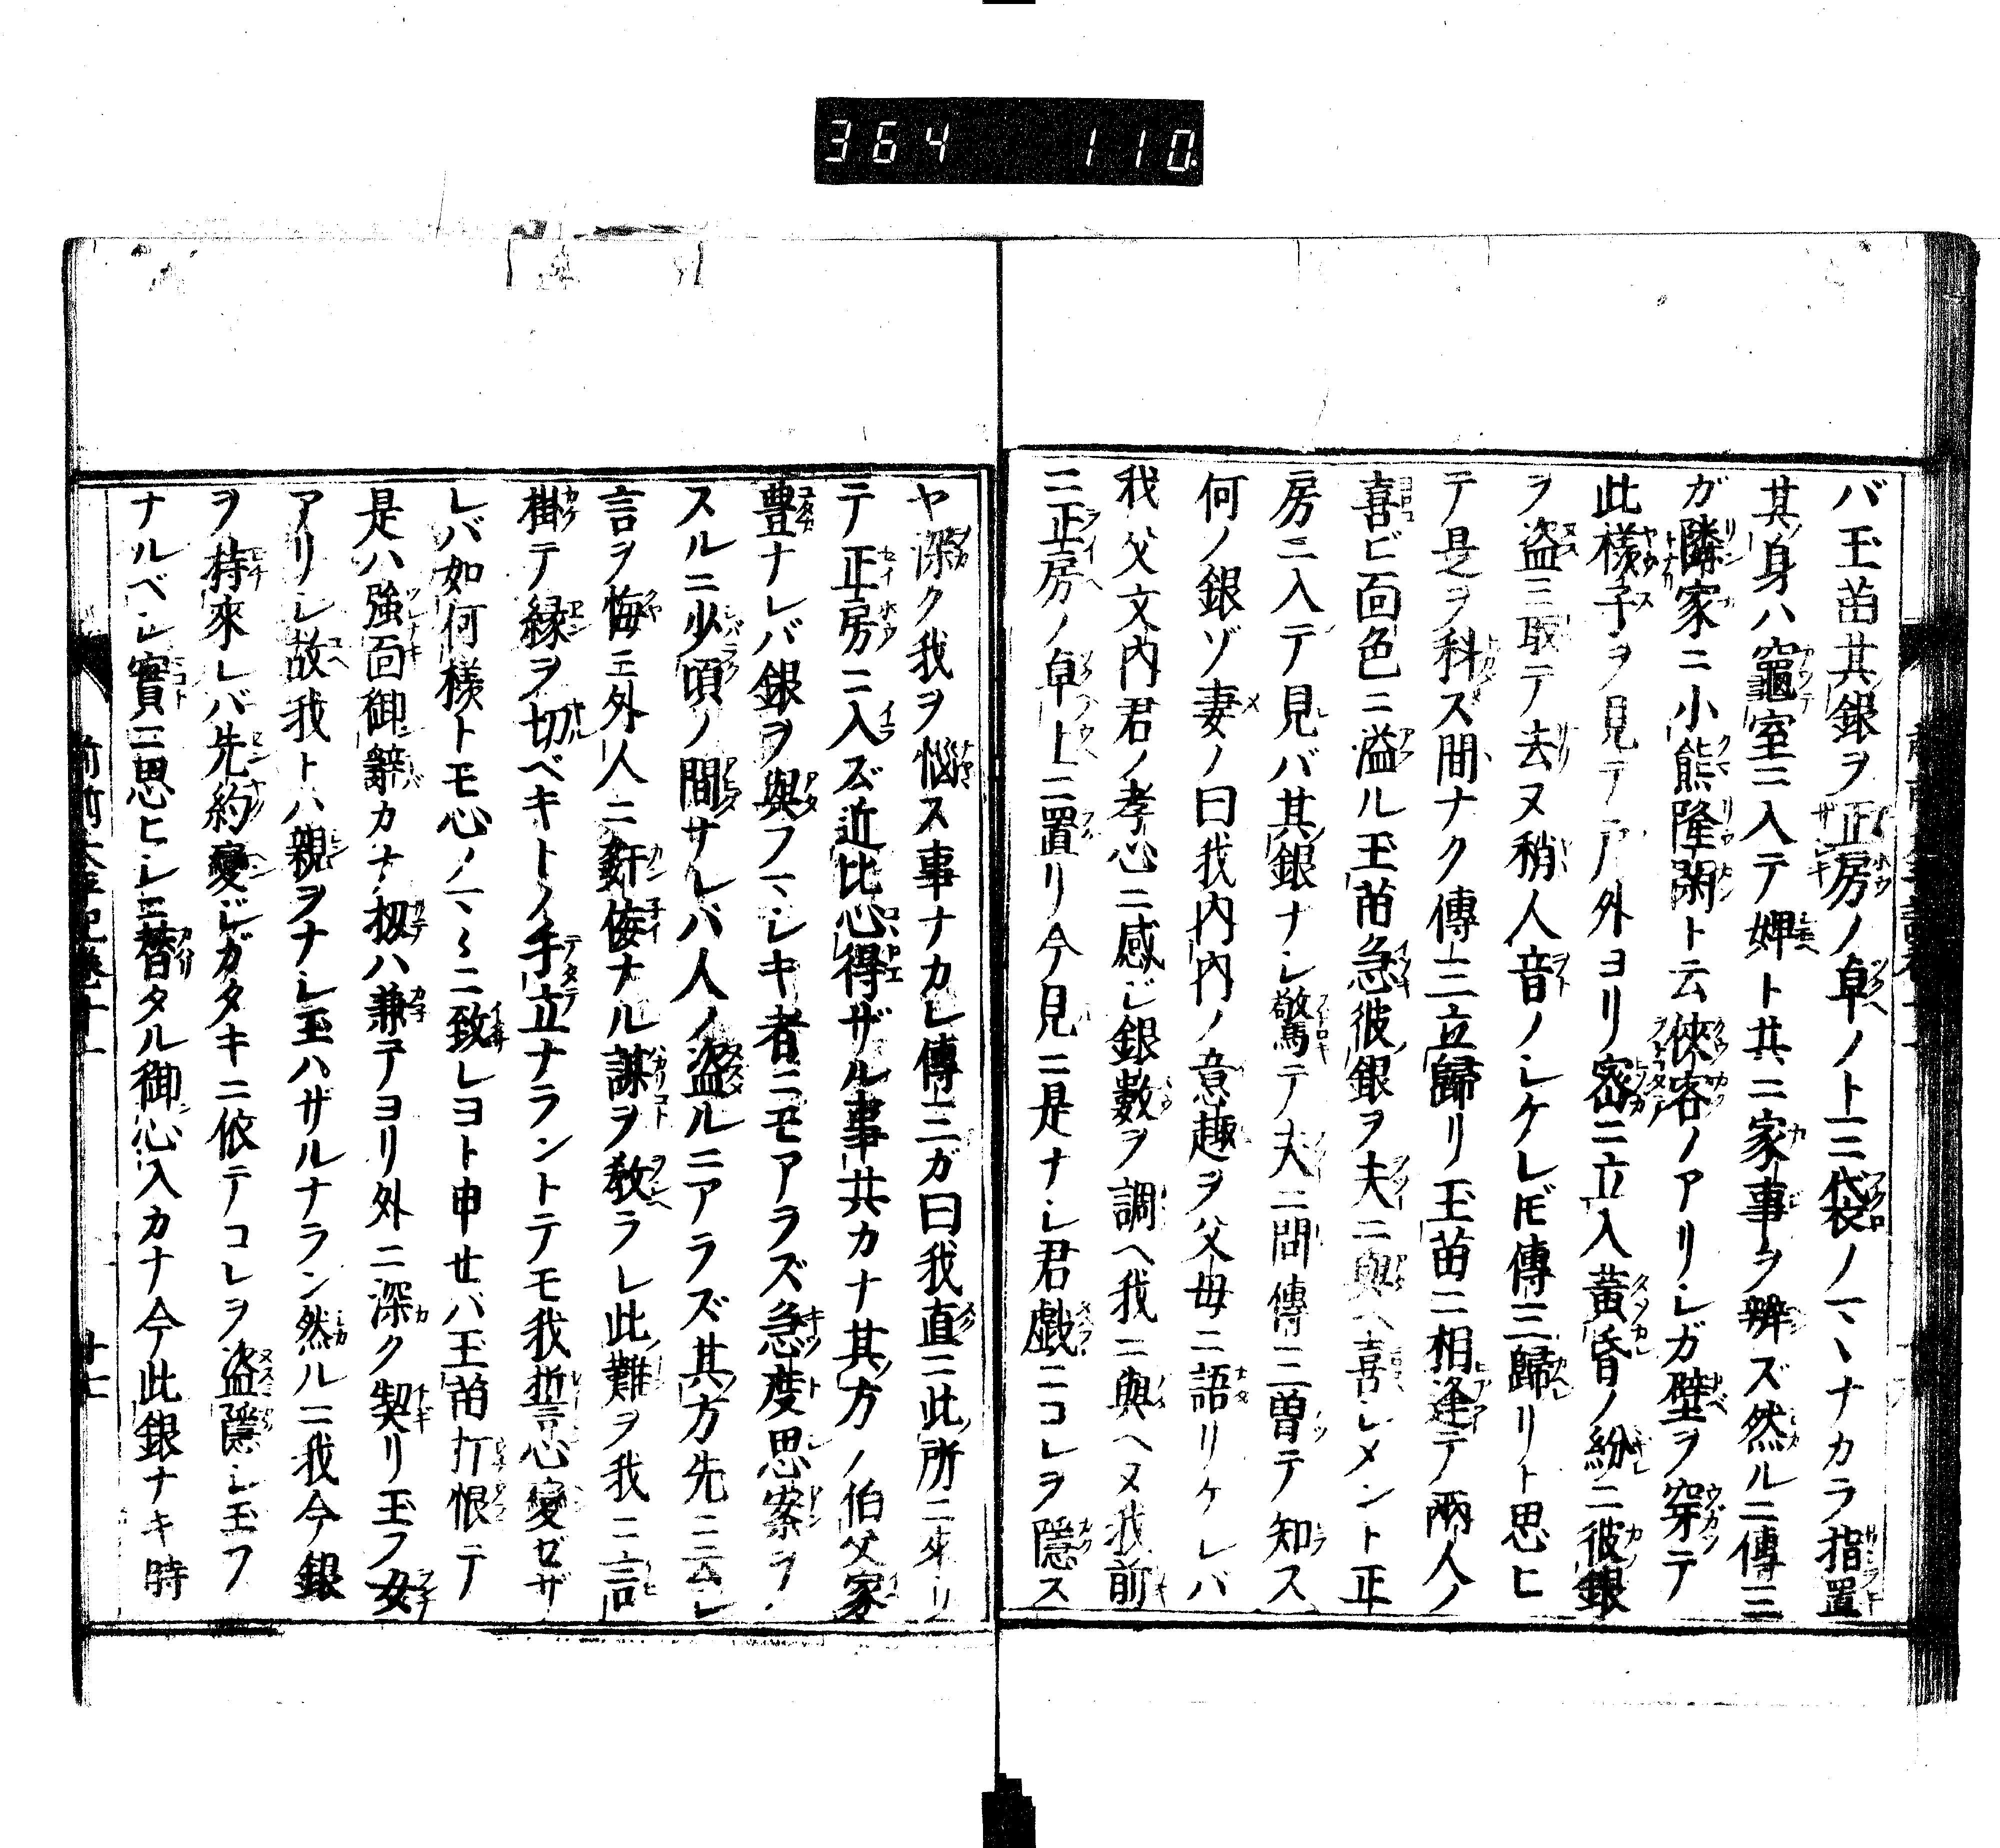 364 110
バ玉苗其銀ヲ正房ノ卓ノ上ニ袋ノマヽナカラ指置
其身ハ竈室ニ入テ婢ト共ニ家事ヲ辨ズ然ルニ傳三
ガ隣家ニ小熊隆閑ト云俠客ノアリシガ壁ヲ穿テ
此樣子ヲ見テ戸外ヨリ密ニ立入黃昏ノ紛ニ彼銀
ヲ盜ミ取テ去ヌ稍人音ノシケレ𪜈傳三歸リト思ヒ
テ是ヲ科ス間ナク傳三立歸リ玉苗ニ相逢テ兩人ノ
喜ビ面色ニ溢ル玉苗急彼銀ヲ夫ニ與ヘ喜シメント正
房ニ入テ見バ其銀ナシ驚テ夫ニ問傳三曽テ知ス
何ノ銀ゾ妻ノ曰我內內ノ意趣ヲ父母ニ語リケレバ
我父文內君ノ孝心ニ感ジ銀數ヲ調ヘ我ニ與ヘヌ我前
ニ正房ノ卓上ニ置リ今見ニ是ナシ君戯ニコレヲ隱ス
ヤ深ク我ヲ惱ス事ナカレ傳三ガ曰我直ニ此所ニ來リ
テ正房ニ入ズ近比心得ザル事共カナ其方ノ伯父家
豊ナレバ銀ヲ與フマシキ者ニモアラズ急度思案ヲ
スルニ少頃ノ間サレバ人ノ盜ルニアラズ其方先ニ云シ
言ヲ悔ミ外人ニ奸侫ナル謀ヲ敎ラレ此難ヲ我ニ言
掛テ縁ヲ切ベキトノ手立ナラントテモ我哲心變ゼザ
レバ如何樣トモ心ノマヽニ致レヨト申セバ玉苗打恨テ
是ハ強面御辭カナ扨ハ兼テヨリ外ニ深ク契リ玉フ女
アリシ故我トハ親ヲナシ玉ハザルナラン然ルニ我今銀
ヲ持來レバ先約變ジガタキニ依テコレヲ盜隱シ玉フ
ナルベシ實ニ思ヒシニ替タル御心入カナ今此銀ナキ時
前前太平記卷十一 廿七